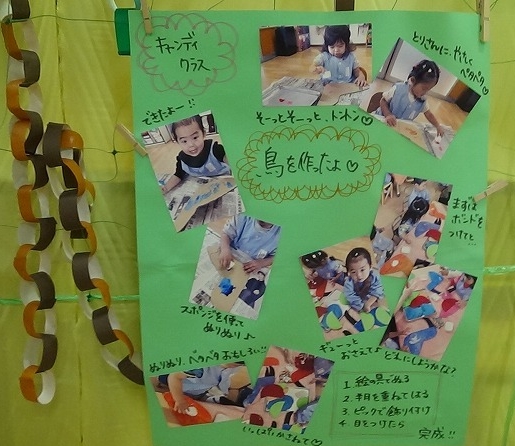 キャンディ
クラス
とりさんに、やさしく
ペタペタ♡
できたよー!!
そーっとそーっと、トントン♡
鳥を作ったよ♡
まずは
ボンドを
つけてと…
スポンジを使って
ぬりぬり♪
ギューっと
おさえてよ
どれにしようかな?
ぬりぬり、ペタペタおもしろい!!
いっぱいかさねて♡
1. 絵の具でぬる
2. 羽を重ねてはる
3. ピックで飾り付け
4 目をつけたら
完成!!